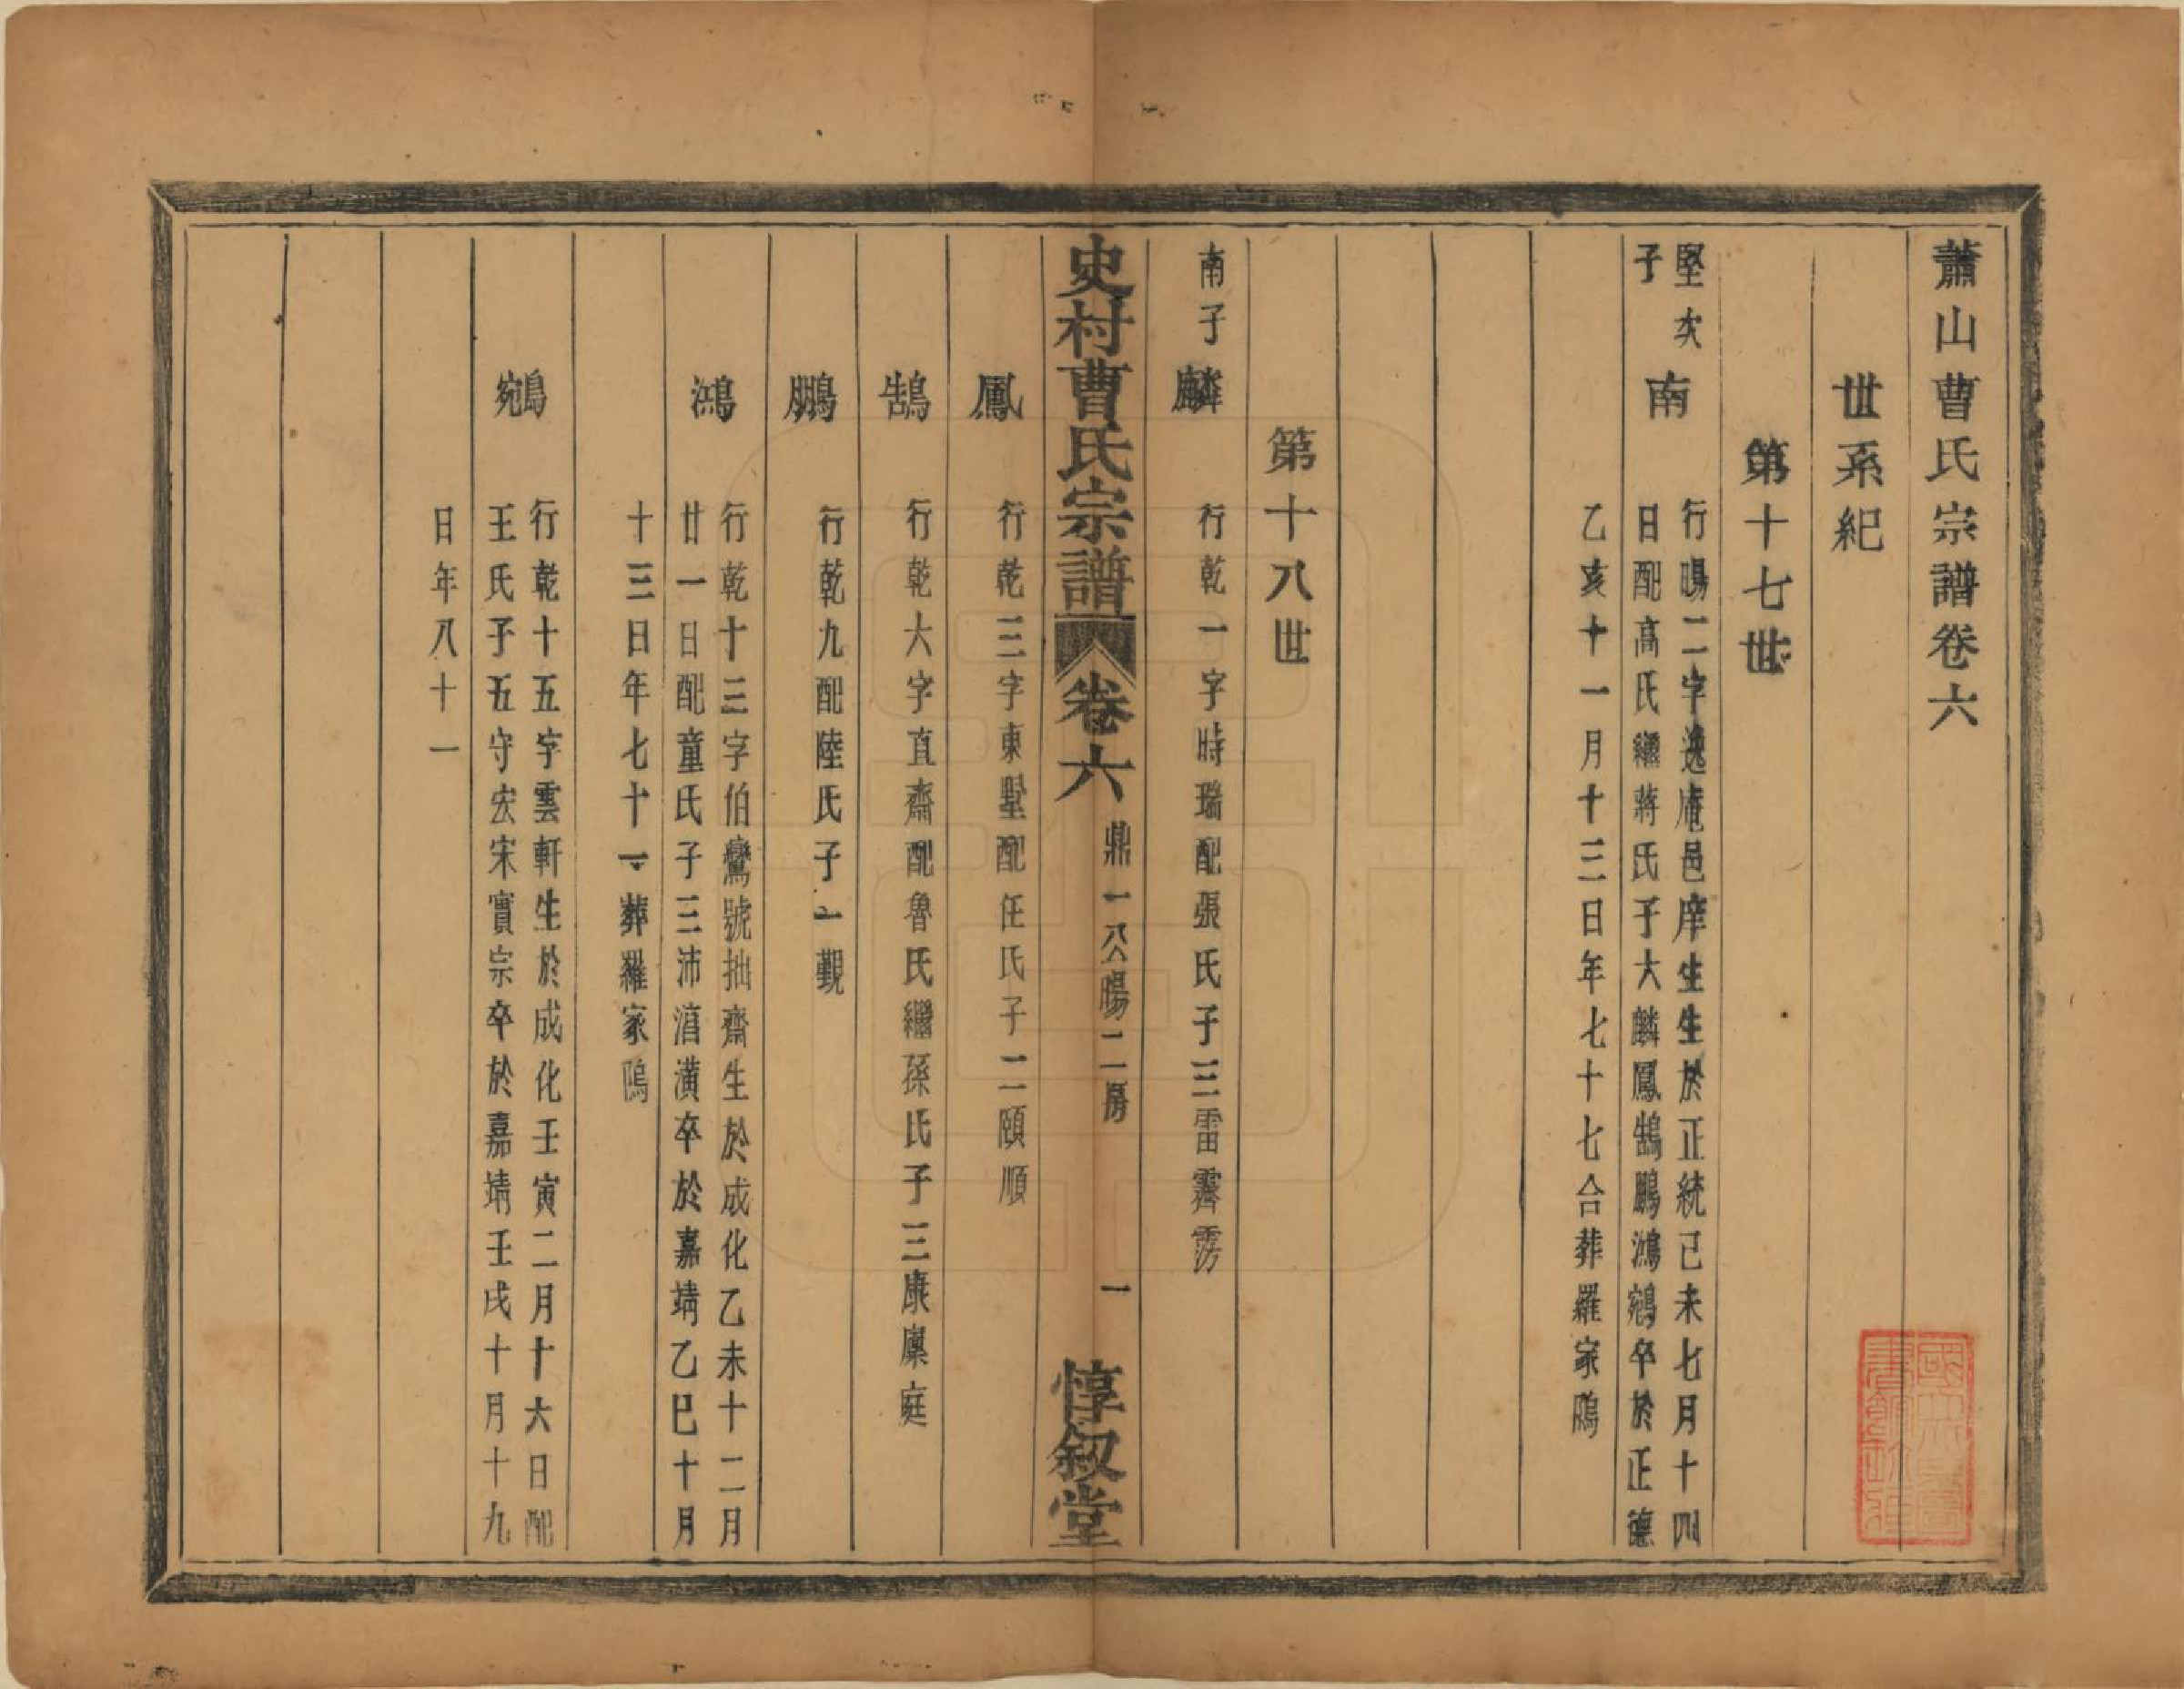 蕭山曹氏宗譜卷六
世系紀
第十七世
堅次
子
南
行暘二字逸庵邑庠生生於正統己未七月十四
日配高氏繼蔣氏子六麟鳳鵠鵬鴻鵷卒於正德
乙亥十一月十三日年七十七合葬羅家隖
第十八世
南子
麟
行乾一字時瑞配張氏子三雷霽霶
史村曹氏宗譜
卷六
鼎一公暘二房
一
惇叙堂
鳳
行乾三字東墅配任氏子二頤順
鵠
行乾六字直齋配魯氏繼孫氏子三康廩庭
鵬
行乾九配陸氏子一觀
鴻
行乾十三字伯鸞號拙齋生於成化乙未十二月
廿一日配童氏子三沛潪潢卒於嘉靖乙巳十月
十三日年七十一葬羅家隖
鵷
行乾十五字雲軒生於成化壬寅二月十六日配
王氏子五守宏宋實宗卒於嘉靖壬戌十月十九
日年八十一